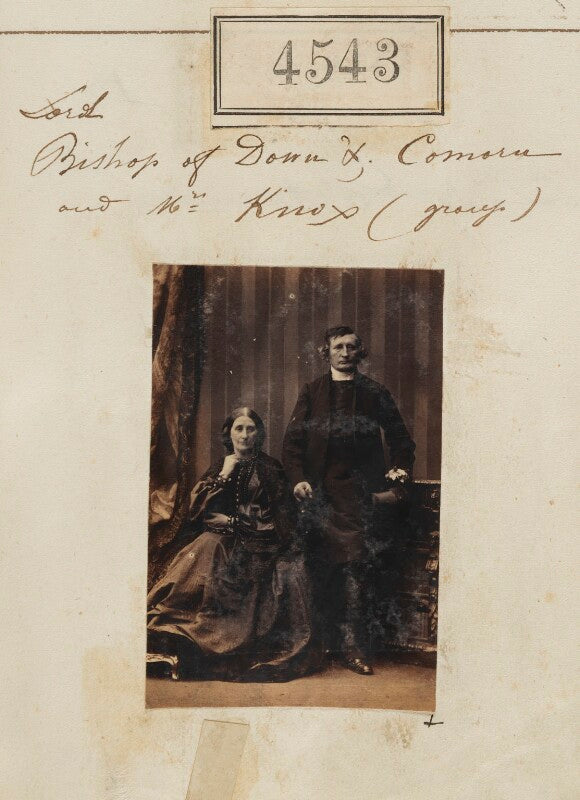 4543
Lord
Bishop of Down &. Comoru
and Mrs Knox (group)